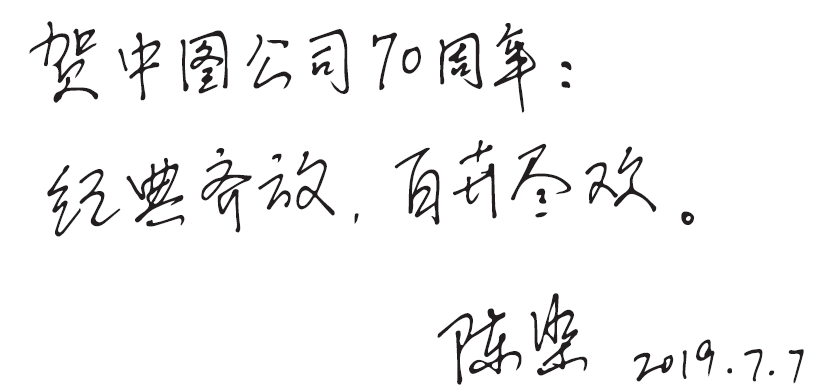 贺中图公司70周年:
经典齐放,百卉尽欢。
陈梁 2019.7.7